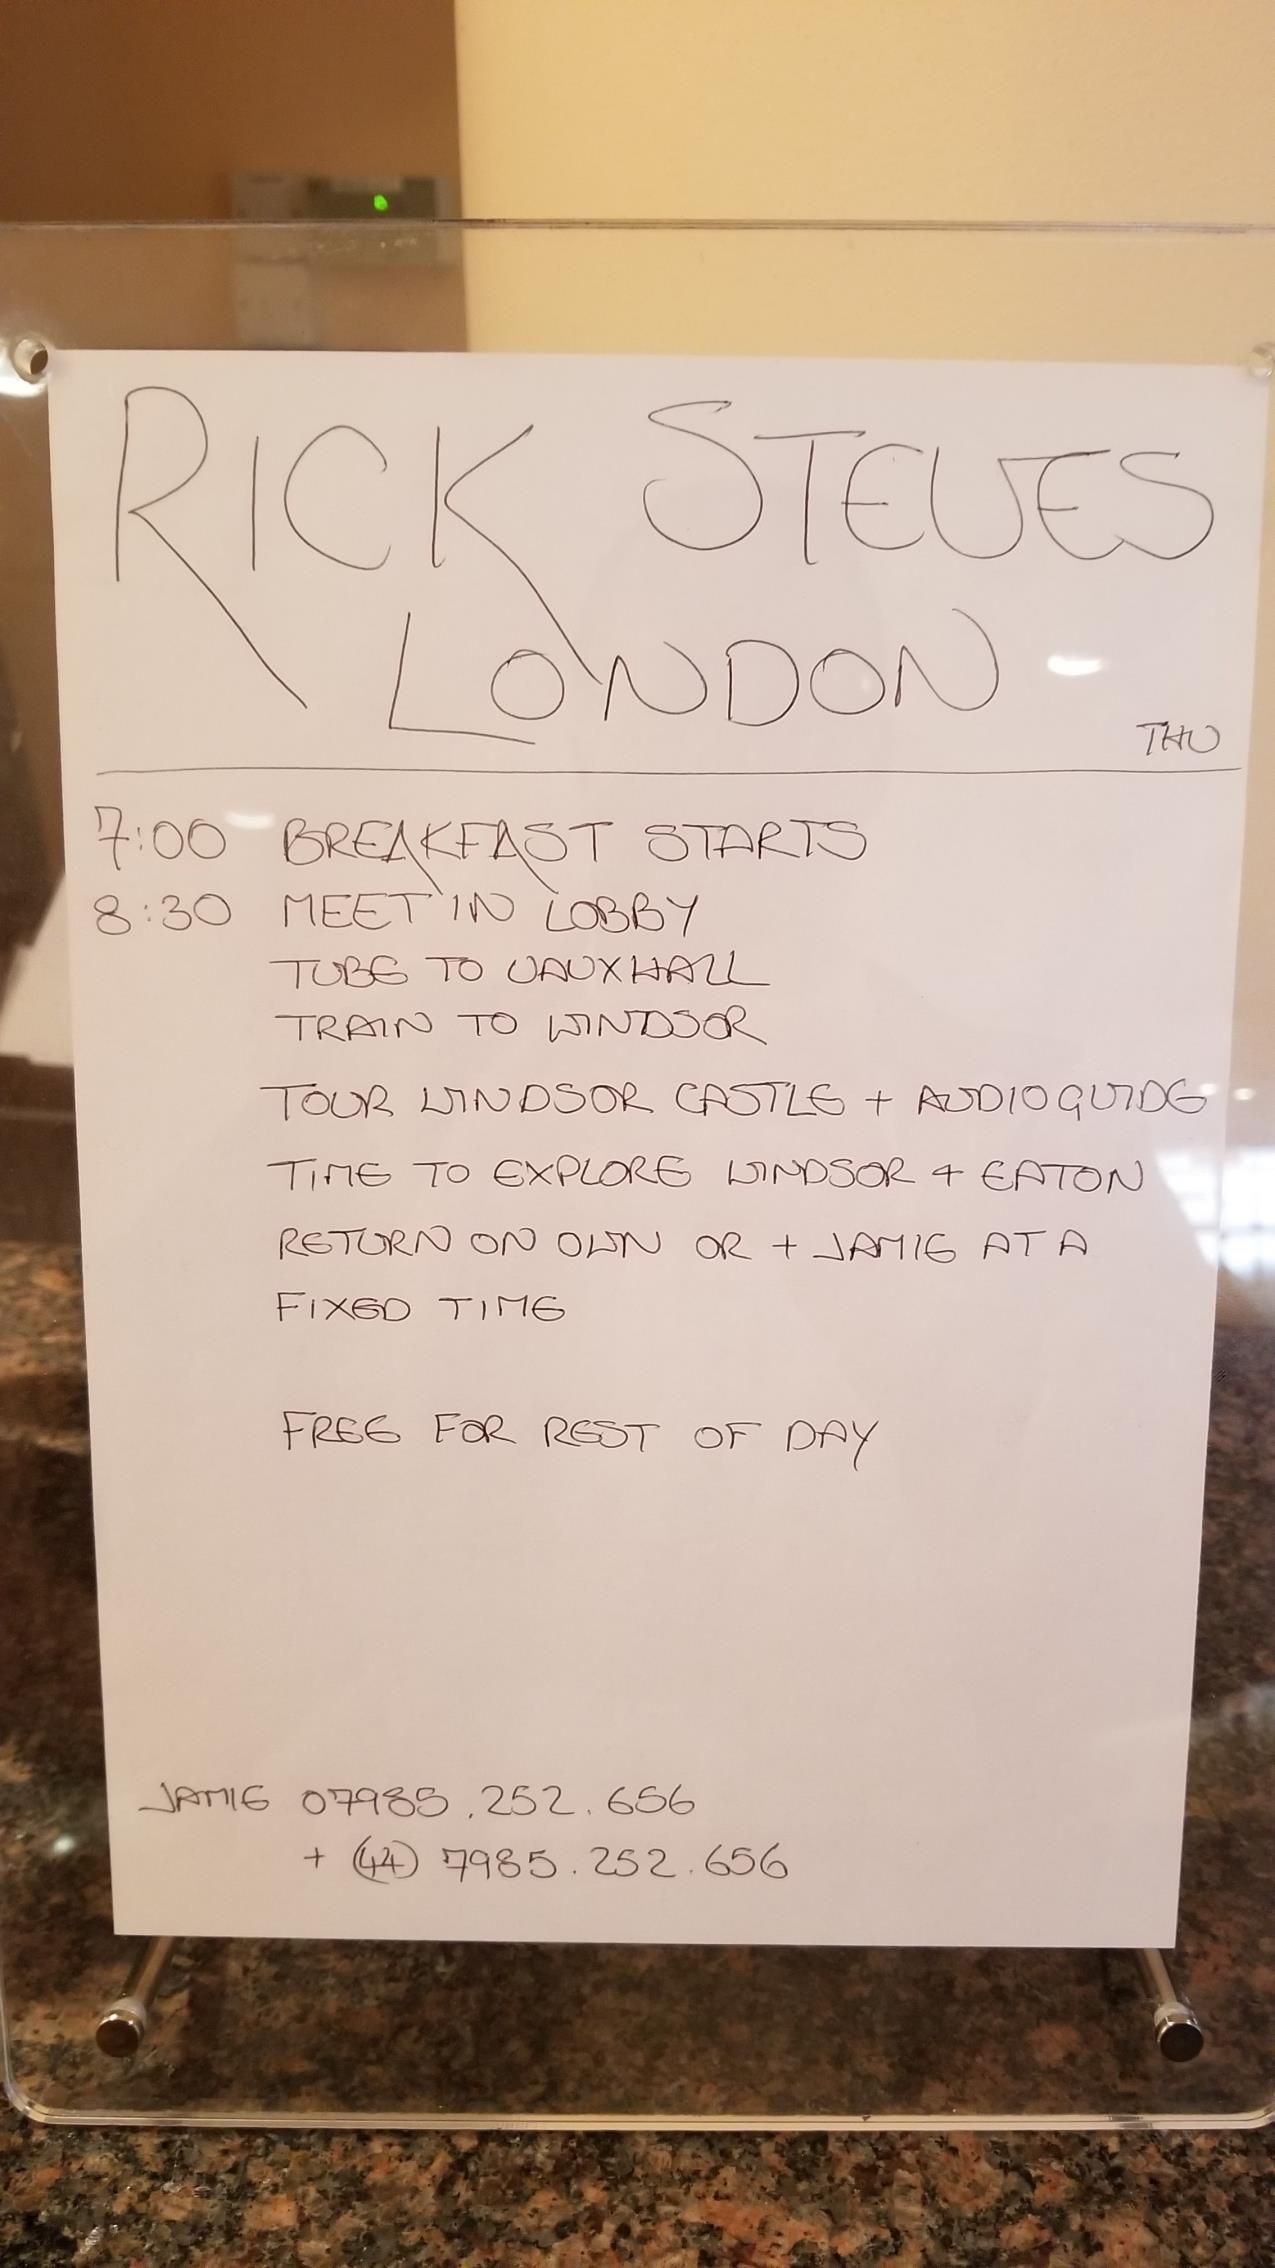 RICK STEVES
LONDON
THU
7:00 BREAKFAST STARTS
8:30 MEET IN LOBBY
TUBE TO VAUXHALL
TRAIN TO WINDSOR
TOUR WINDSOR CASTLE + AUDIOGUIDE
TIME TO EXPLORE WINDSOR + EATON
RETURN ON OWN OR + JAMIE AT A
FIXED TIME
FREE FOR REST OF DAY
JAMIE 07985.252.656
+ (44) 7985.252.656